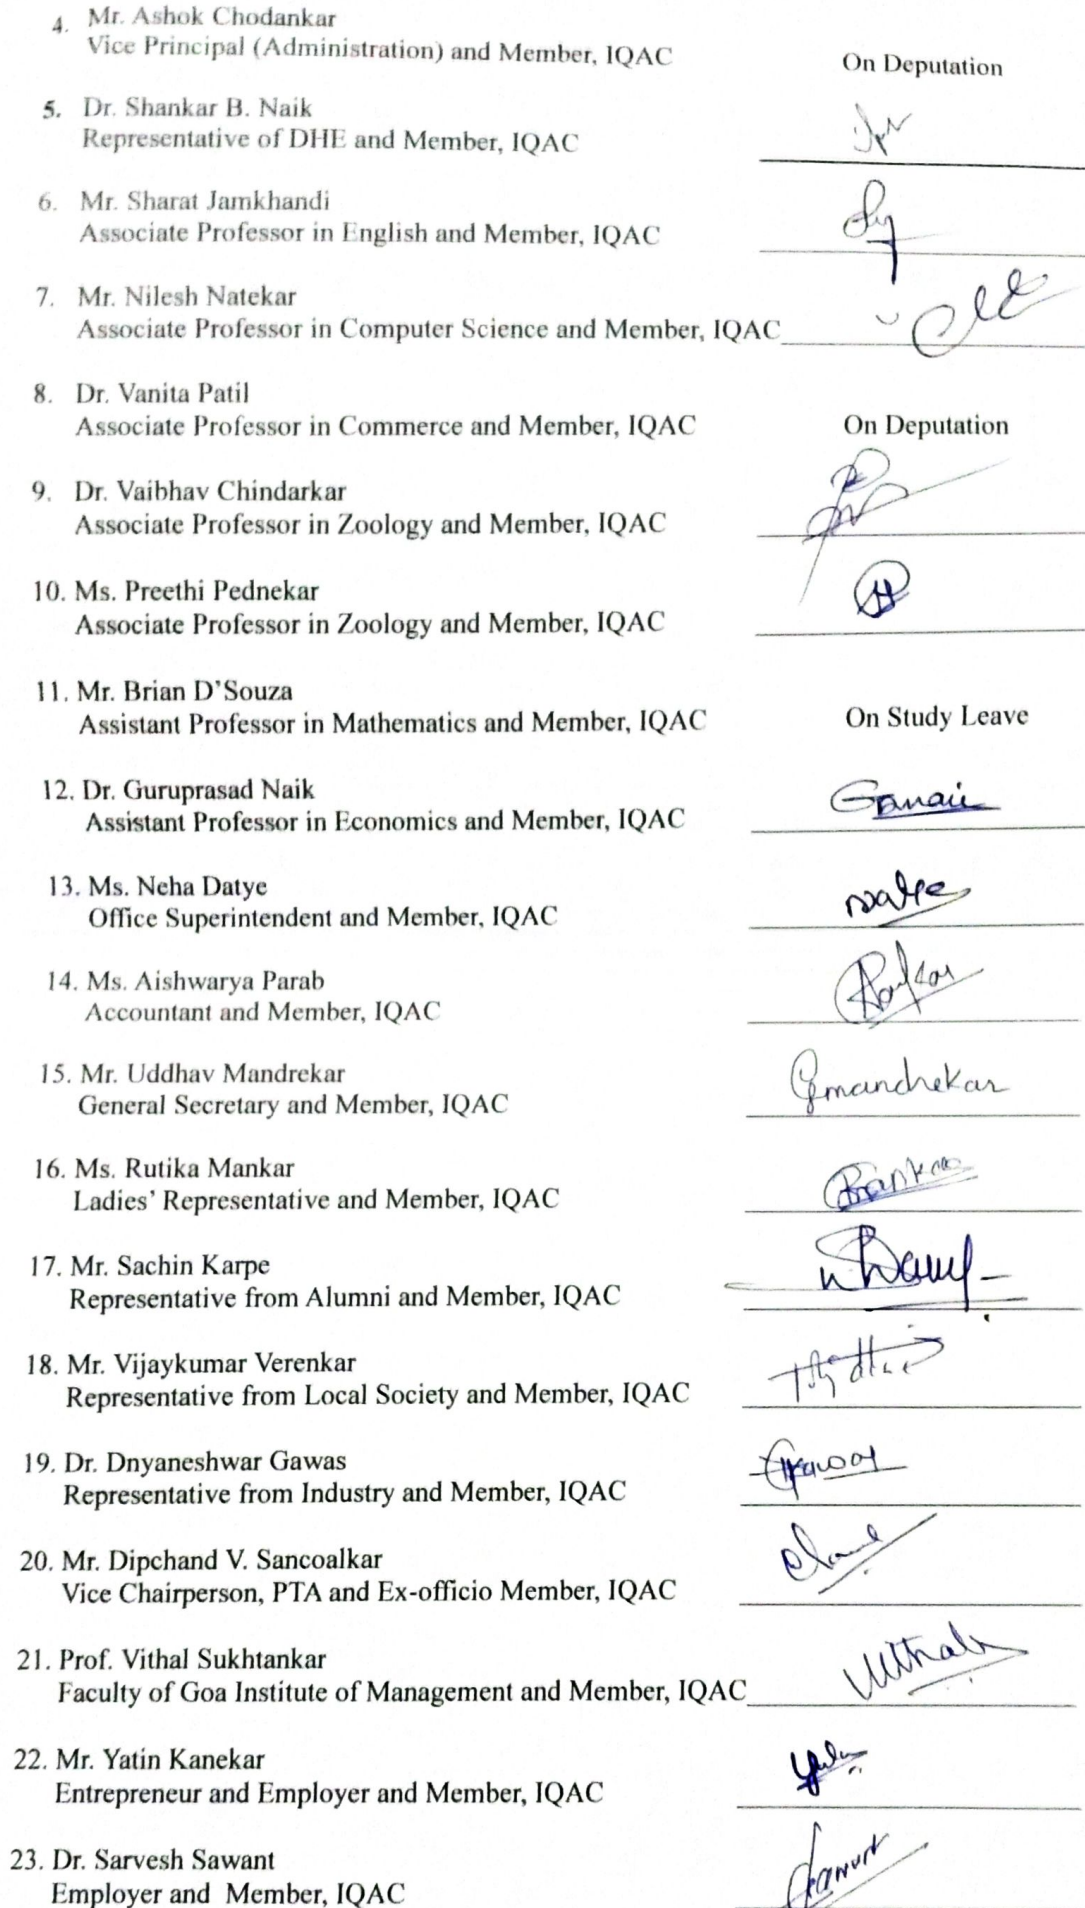 4. Mr. Ashok Chodankar
Vice Principal (Administration) and Member, IQAC
On Deputation
5. Dr. Shankar B. Naik
Representative of DHE and Member, IQAC
6. Mr. Sharat Jamkhandi
Associate Professor in English and Member, IQAC
7. Mr. Nilesh Natekar
Associate Professor in Computer Science and Member, IQAC
8. Dr. Vanita Patil
Associate Professor in Commerce and Member, IQAC
On Deputation
9. Dr. Vaibhav Chindarkar
Associate Professor in Zoology and Member, IQAC
10. Ms. Preethi Pednekar
Associate Professor in Zoology and Member, IQAC
11. Mr. Brian D'Souza
Assistant Professor in Mathematics and Member, IQAC
On Study Leave
12. Dr. Guruprasad Naik
Assistant Professor in Economics and Member, IQAC
13. Ms. Neha Datye
Office Superintendent and Member, IQAC
14. Ms. Aishwarya Parab
Accountant and Member, IQAC
15. Mr. Uddhav Mandrekar
General Secretary and Member, IQAC
16. Ms. Rutika Mankar
Ladies' Representative and Member, IQAC
17. Mr. Sachin Karpe
Representative from Alumni and Member, IQAC
18. Mr. Vijaykumar Verenkar
Representative from Local Society and Member, IQAC
19. Dr. Dnyaneshwar Gawas
Representative from Industry and Member, IQAC
20. Mr. Dipchand V. Sancoalkar
Vice Chairperson, PTA and Ex-officio Member, IQAC
21. Prof. Vithal Sukhtankar
Faculty of Goa Institute of Management and Member, IQAC
22. Mr. Yatin Kanekar
Entrepreneur and Employer and Member, IQAC
23. Dr. Sarvesh Sawant
Employer and Member, IQAC